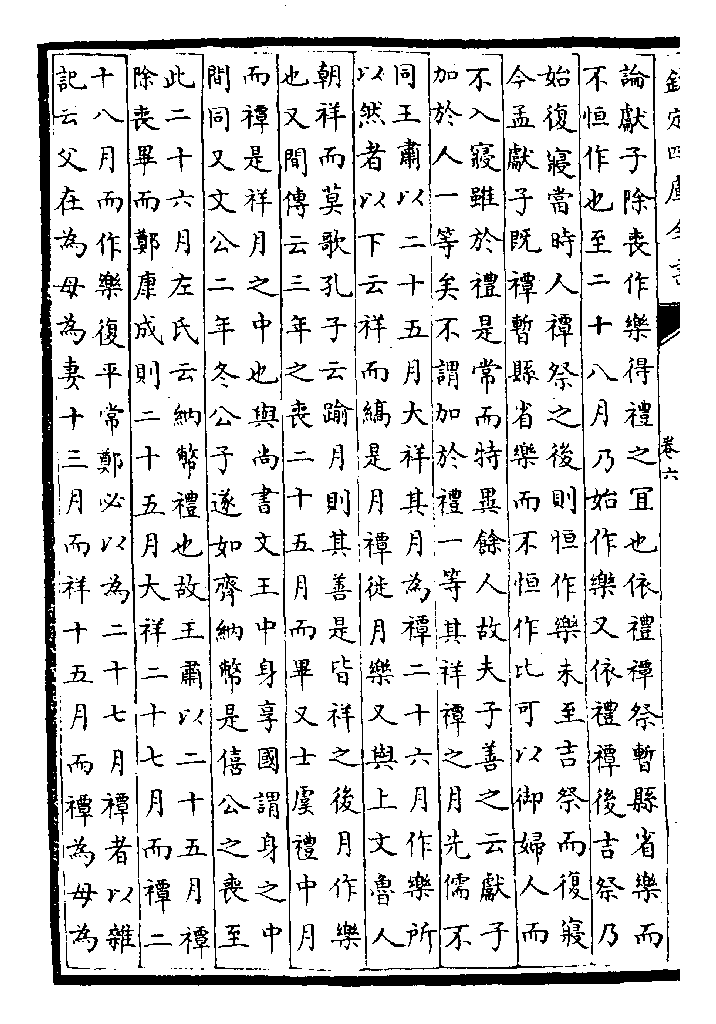 欽定四庫全書
卷六
論獻子除喪作樂得禮之宜也依禮禫祭暫縣省樂而
不恒作也至二十八月乃始作樂又依禮禫後吉祭乃
始復寢當時人禫祭之後則恒作樂未至吉祭而復寢
今孟獻子既禫暫縣省樂而不恒作比可以御婦人而
不入寢雖於禮是常而特異餘人故夫子善之云獻子
加於人一等矣不謂加於禮一等其祥禫之月先儒不
同王肅以二十五月大祥其月為禫二十六月作樂所
以然者以下云祥而縞是月禫徙月樂又與上文魯人
朝祥而莫歌孔子云踰月則其善是皆祥之後月作樂
也又間傳云三年之喪二十五月而畢又士虞禮中月
而禫是祥月之中也與尚書文王中身享國謂身之中
間同又文公二年冬公子遂如齊納幣是僖公之喪至
此二十六月左氏云納幣禮也故王肅以二十五月禫
除喪畢而鄭康成則二十五月大祥二十七月而禫二
十八月而作樂復平常鄭必以為二十七月禫者以雜
記云父在為母為妻十三月而祥十五月而禫為母為